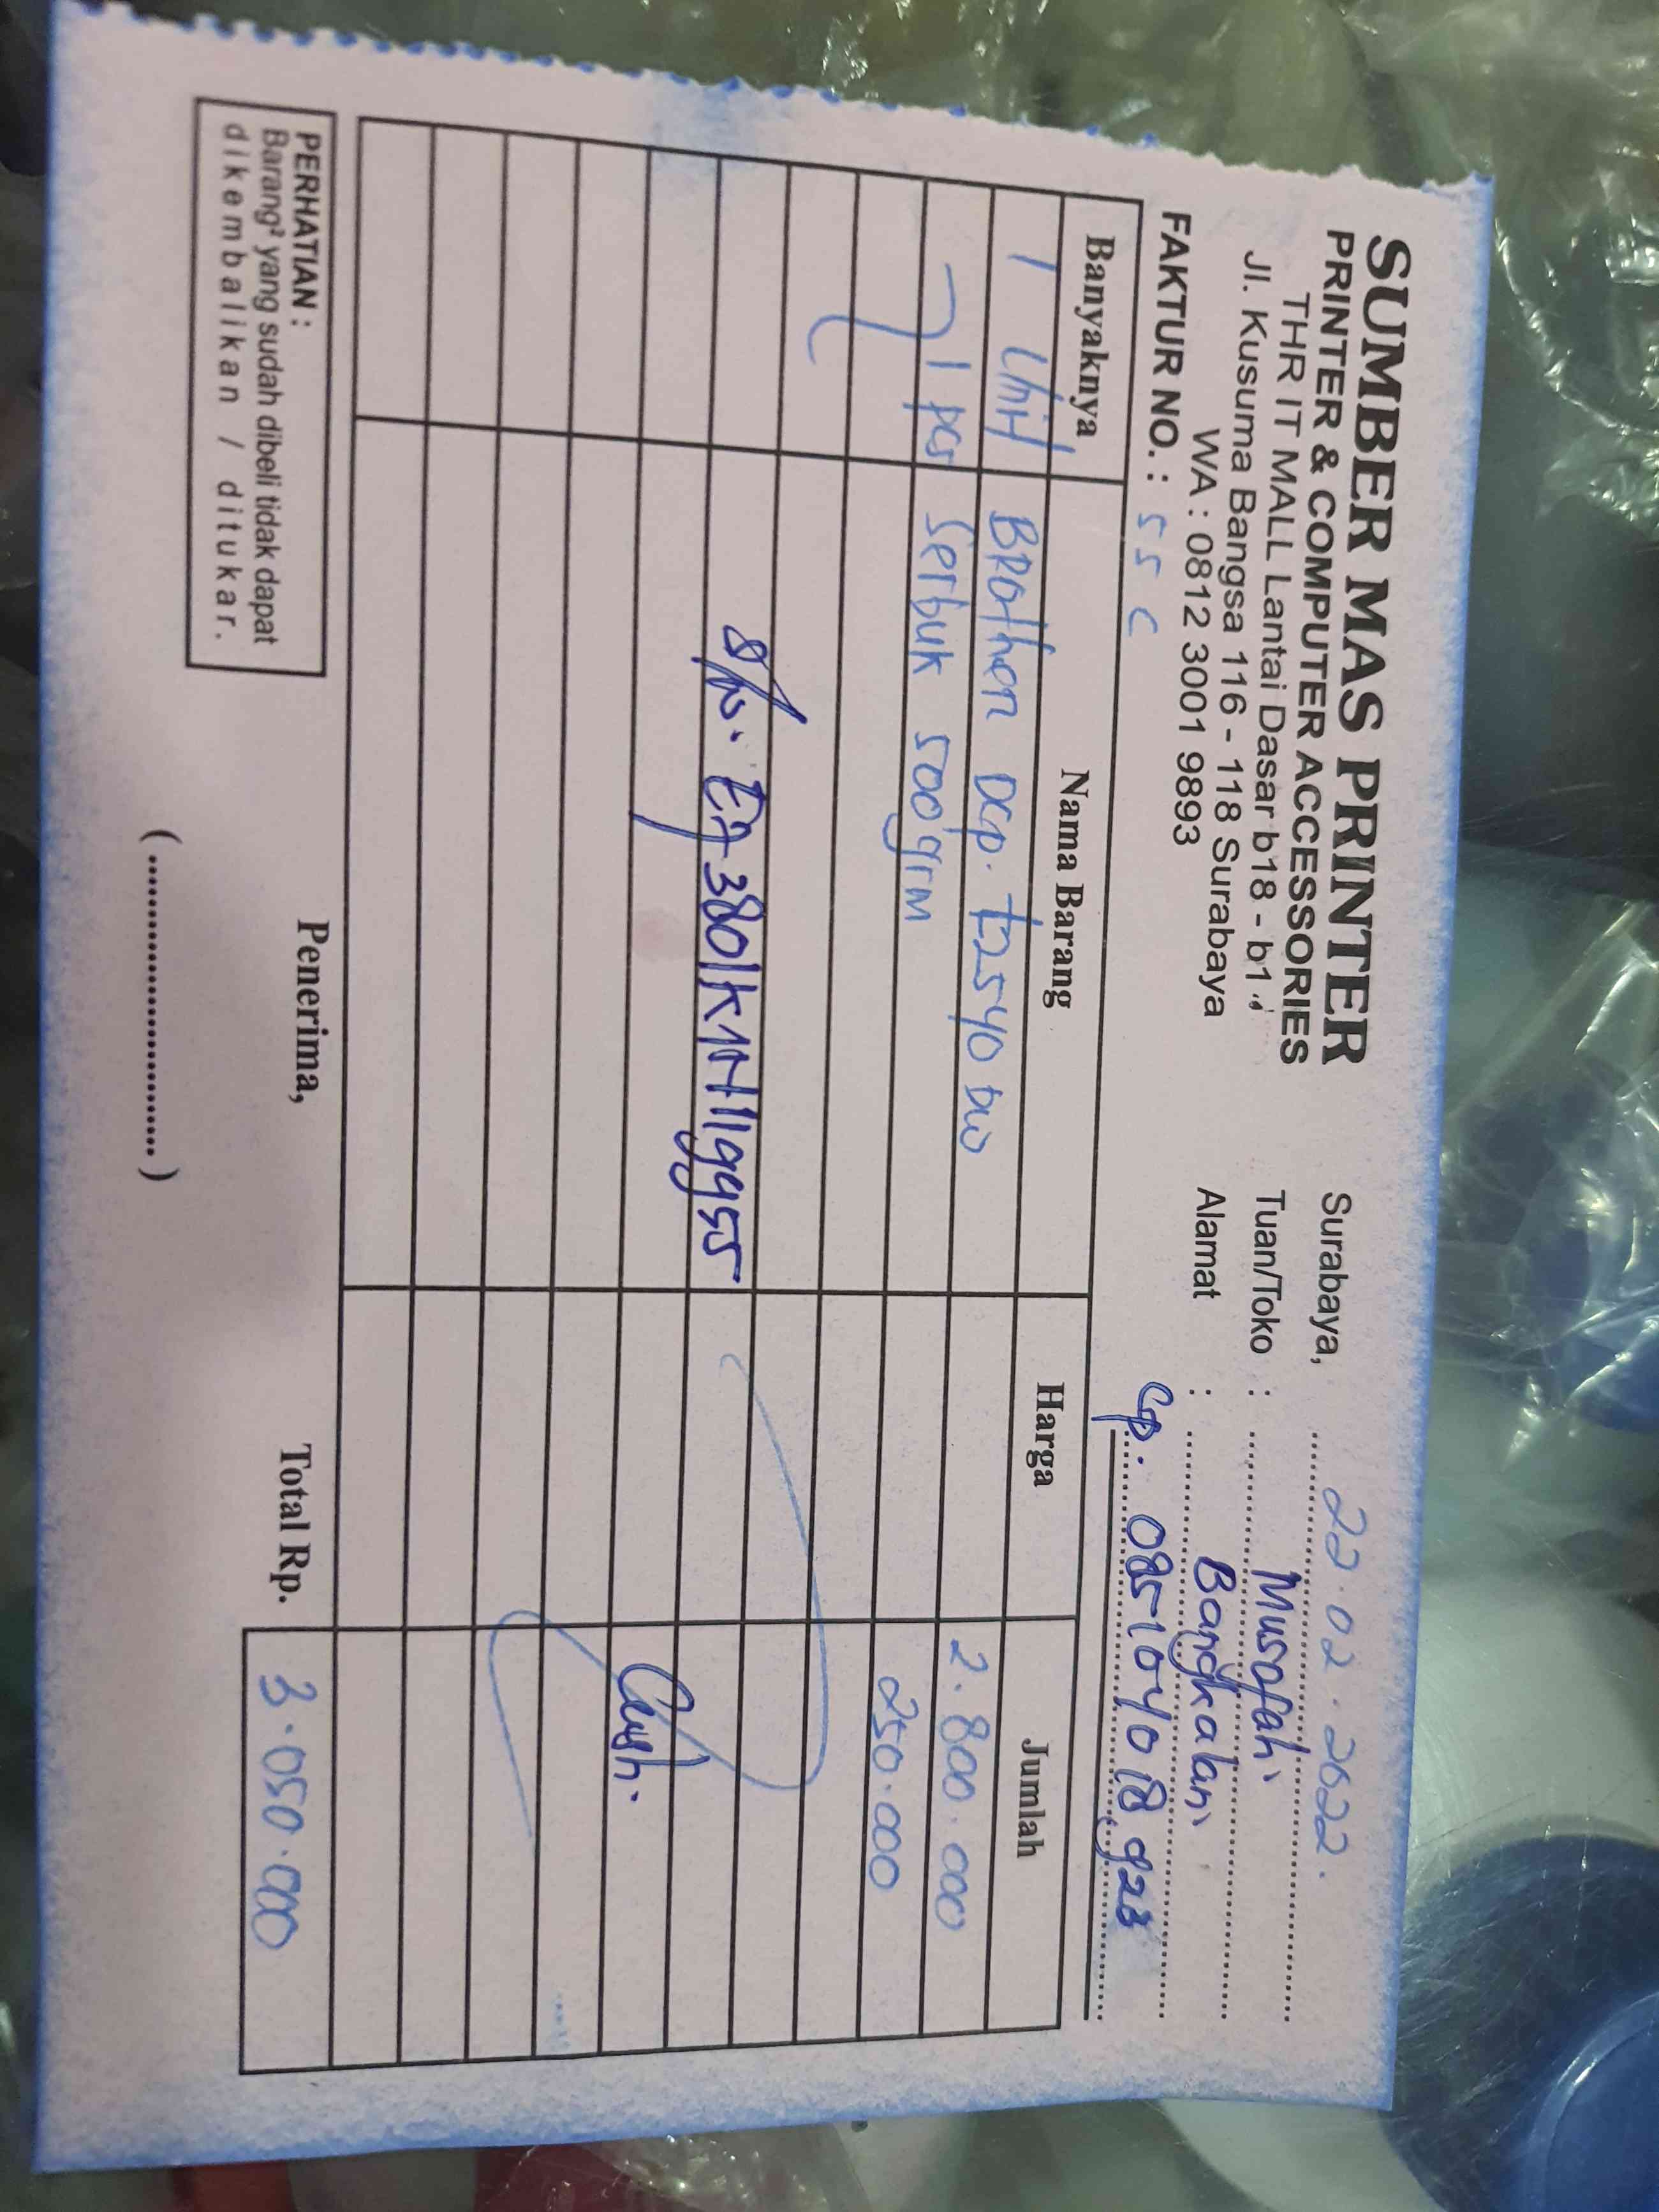 SUMBER MAS PRINTER
PRINTER & COMPUTER ACCESSORIES
THR IT MALL Lantai Dasar b18 - b1
Jl. Kusuma Bangsa 116 - 118 Surabaya
WA : 0812 3001 9893
FAKTUR NO. : 55 C
Surabaya, 22.02.2022.
Tuan/Toko : Musafah
Alamat : Bangkalan
Cp. 0851040 18 923
Banyaknya Nama Barang Harga Jumlah
1 Unit BROtHeR DCp. t2540 DW 2.800.000
1 pcs Serbuk 500 grm 250.000
S/N.
Cash.
PERHATIAN :
Barang² yang sudah dibeli tidak dapat
dikembalikan / ditukar.
Penerima,
(........................)
Total Rp. 3.050.000